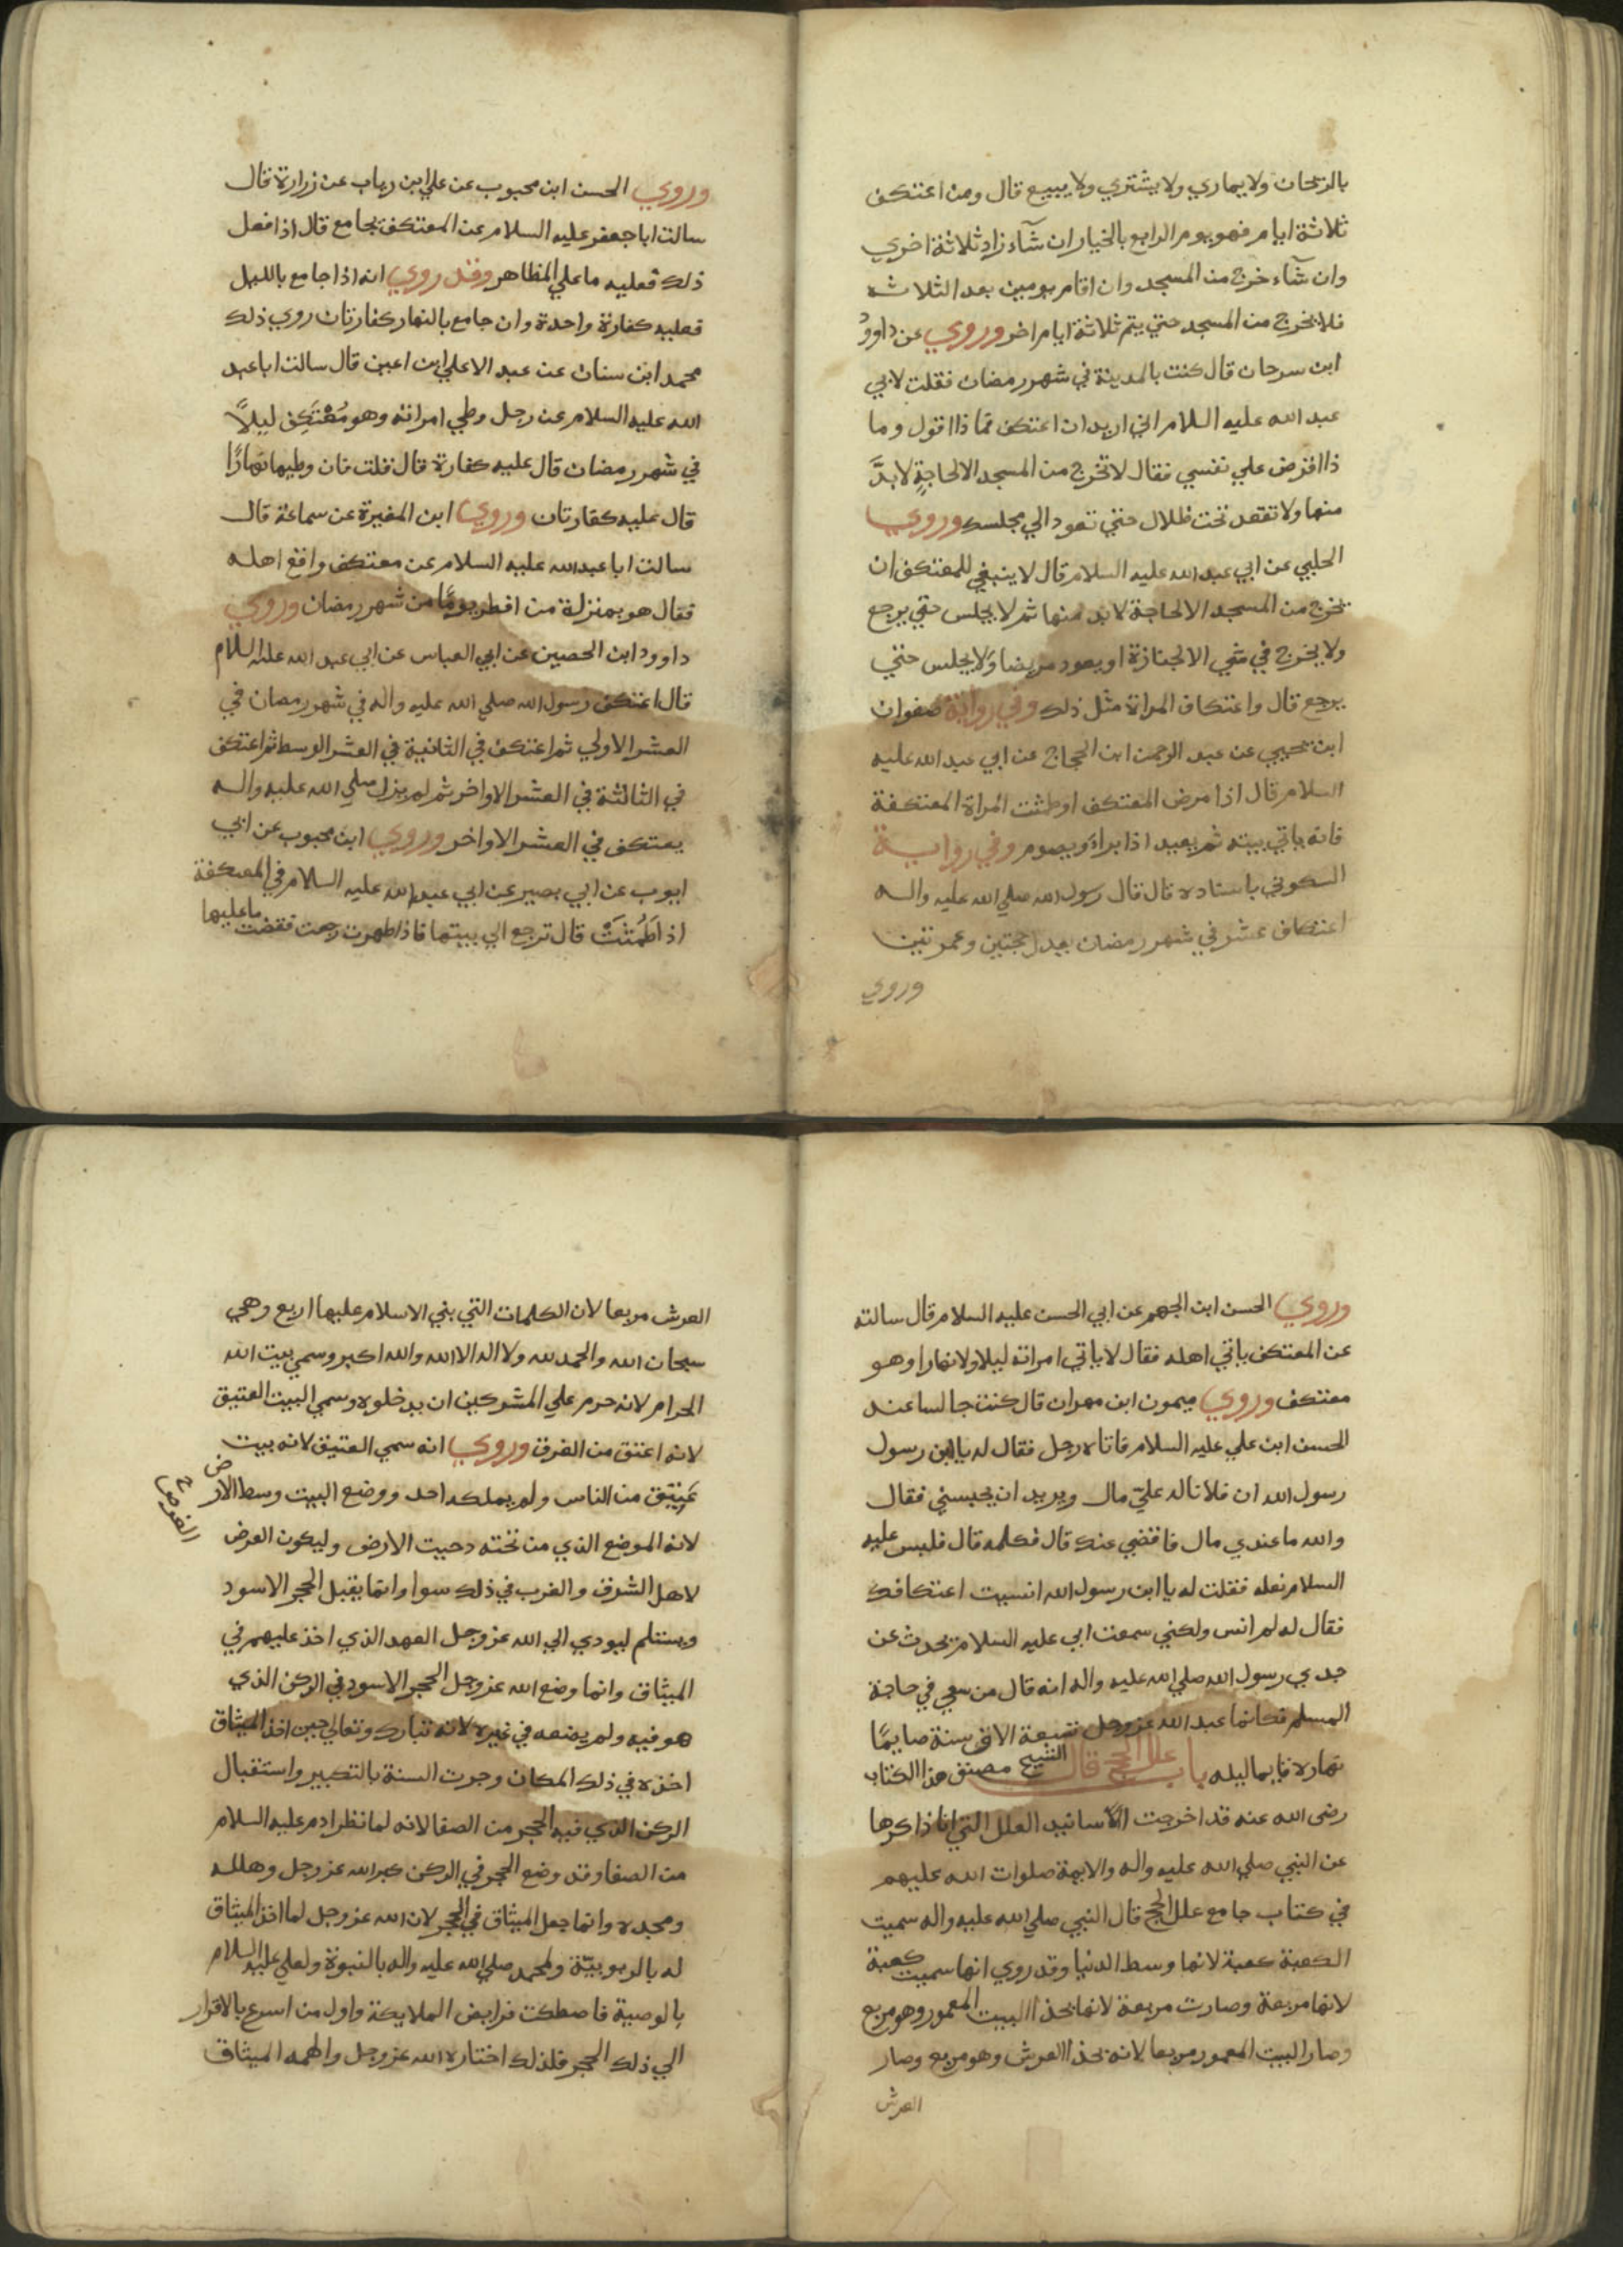 بالريحان ولا يماري ولا يشتري ولا يبيع قال ومن اعتكف
ثلاثة ايام فهو يوم الرابع بالخيار ان شآء زاد ثلاثة اخري
وان شآء خرج من المسجد وان اقام يومين بعد الثلاثه
فلا يخرج من المسجد حتي يتم ثلاثة ايام اخر وروي عن داوود
ابن سرحان قال كنت بالمدينة في شهر رمضان فقلت لابي
عبد الله عليه السلام اني اريد ان اعتكف فما ذا اقول وما
ذا افرض علي نفسي فقال لا تخرج من المسجد الا لحاجةٍ لا بدَّ
منها ولا تقعد تحت ظلال حتي تعود الي مجلسك وروي
الحلبي عن ابي عبد الله عليه السلام قال لا ينبغي للمعتكف ان
يخرج من المسجد الا لحاجة لا بد منها ثم لا يجلس حتي يرجع
ولا يخرج في شي الا لجنازة او يعود مريضا ولا يجلس حتي
يرجع قال واعتكاف المراة مثل ذلك وفي رواية صفوان
ابن يحيي عن عبد الرحمن ابن الحجاج عن ابي عبد الله عليه
السلام قال اذا مرض المعتكف او طمثت المراة المعتكفة
فانه ياتي بيته ثم يعيد اذا براء ويصوم وفي رواية
السكوني باسناده قال قال رسول الله صلي الله عليه واله
اعتكاف عشر في شهر رمضان يعدل حجتين وعمرتين
وروي
وروي الحسن ابن محبوب عن علي ابن رياب عن زرارة قال
سالت ابا جعفر عليه السلام عن المعتكف يجامع قال اذا فعل
ذلك فعليه ما علي المظاهر وقد روي انه اذا جامع بالليل
فعليه كفارة واحدة وان جامع بالنهار كفارتان روي ذلك
محمد ابن سنان عن عبد الاعلي ابن اعين قال سالت ابا عبد
الله عليه السلام عن رجل وطي امراته وهو مُعْتَكِف ليلاً
في شهر رمضان قال عليه كفارة قال قلت فان وطيها نهارًا
قال عليه كفارتان وروي ابن المغيرة عن سماعة قال
سالت ابا عبد الله عليه السلام عن معتكف واقع اهله
فقال هو بمنزلة من افطر يومًا من شهر رمضان وروي
داوود ابن الحصين عن ابي العباس عن ابي عبد الله عليه السلام
قال اعتكف رسول الله صلي الله عليه واله في شهر رمضان في
العشر الاولي ثم اعتكف في الثانية في العشر الوسط ثم اعتكف
في الثالثة في العشر الاواخر ثم لم يزل صلي الله عليه واله
يعتكف في العشر الاواخر وروي ابن محبوب عن ابي
ايوب عن ابي بصير عن ابي عبد الله عليه السلام في المعتكفة
اذا طَمُثَتْ قال ترجع الي بيتها فاذا طهرت رجعت فقضت ما عليها
وروي الحسن ابن الجهم عن ابي الحسن عليه السلام قال سالته
عن المعتكف ياتي اهله فقال لا ياتي امراته ليلا ولا نهارا وهو
معتكف وروي ميمون ابن مهران قال كنت جالسا عند
الحسن ابن علي عليه السلام فاتاه رجل فقال له يا ابن رسول
رسول الله ان فلانا له عليّ مال ويريد ان يحبسني فقال
والله ما عندي مال فاقضي عنك قال فكلمه قال فلبس عليه
السلام نعله فقلت له يا ابن رسول الله انسيت اعتكافك
فقال له لم انس ولكني سمعت ابي عليه السلام يحدث عن
جدي رسول الله صلي الله عليه واله انه قال من سعي في حاجة
المسلم فكانما عبد الله عز وجل تسعة الاف سنة صايمًا
نهاره قايما ليله باب علل الحج قال الشيخ مصنف هذا الكتاب
رضى الله عنه قد اخرجت الاسانيد العلل التي انا ذاكرها
عن النبي صلي الله عليه واله والايمة صلوات الله عليهم
في كتاب جامع علل الحج قال النبي صلي الله عليه واله سميت
الكعبة كعبة لانها وسط الدنيا وقد روي انها سميت كعبة
لانها مربعة وصارت مربعة لانها بحذا البيت المعمور وهو مربع
وصار البيت المعمور مربعا لانه بحذا العرش وهو مربع وصار
العرش
العرش مربعا لان الكلمات التي بني الاسلام عليها اربع وهي
سبحان الله والحمد لله ولا اله الا الله والله اكبر وسمي بيت الله
الحرام لانه حرم علي المشركين ان يدخلوه وسمي البيت العتيق
لانه اعتق من الغرق وروي انه سمي العتيق لانه بيت
عَتِيق من الناس ولم يملكه احد ووضع البيت وسط الارض
لانه الموضع الذي من تحته دحيت الارض وليكون العرض
لاهل الشرق والغرب في ذلك سوا وانما يقبل الحجر الاسود
ويستلم ليودي الي الله عز وجل العهد الذي اخذ عليهم في
الميثاق وانما وضع الله عز وجل الحجر الاسود في الركن الذي
هو فيه ولم يضعه في غيره لانه تبارك وتعالي حين اخذ الميثاق
اخذه في ذلك المكان وجرت السنة بالتكبير واستقبال
الركن الذي فيه الحجر من الصفا لانه لما نظر ادم عليه السلام
من الصفا وقد وضع الحجر في الركن كبر الله عز وجل وهلله
ومجده وانما جعل الميثاق في الحجر لان الله عز وجل لما اخذ الميثاق
له بالربوبيّة ولمحمد صلي الله عليه واله بالنبوة ولعلي عليه السلام
بالوصية فاصطكت فرايض الملايكة واول من اسرع بالاقرار
الي ذلك الحجر فلذلك اختاره الله عز وجل والهمه الميثاق